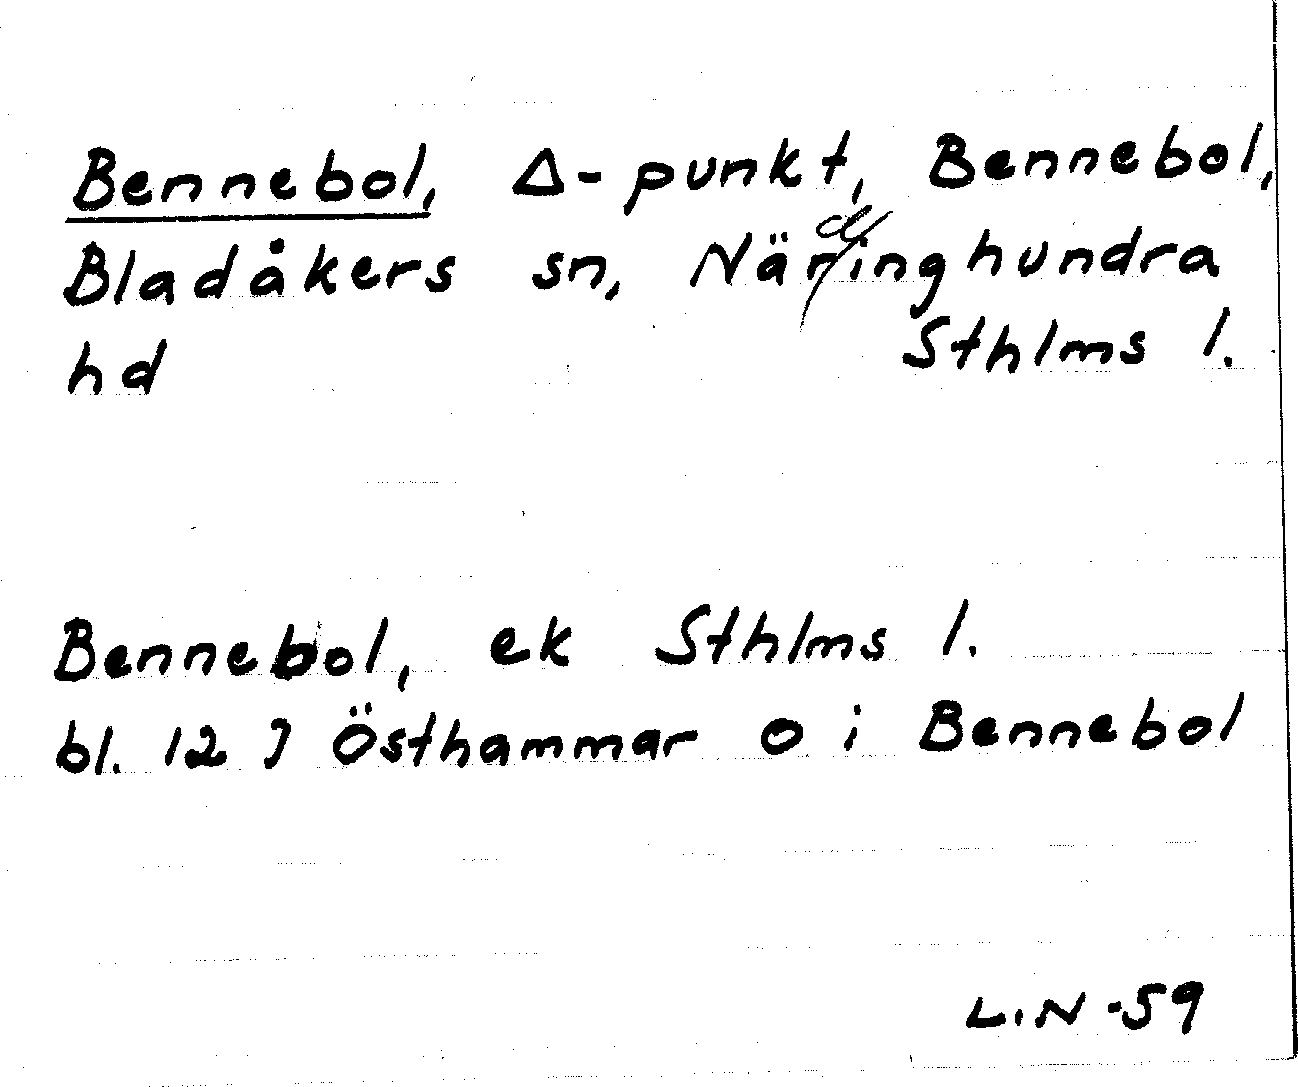 Bennebol, Δ-punkt, Bennebol,
Bladåkers sn, Närdinghundra
hd Sthlms l.
Bennebol, ek Sthlms l.
bl. 12 J Östhammar O i Bennebol
L.N -59